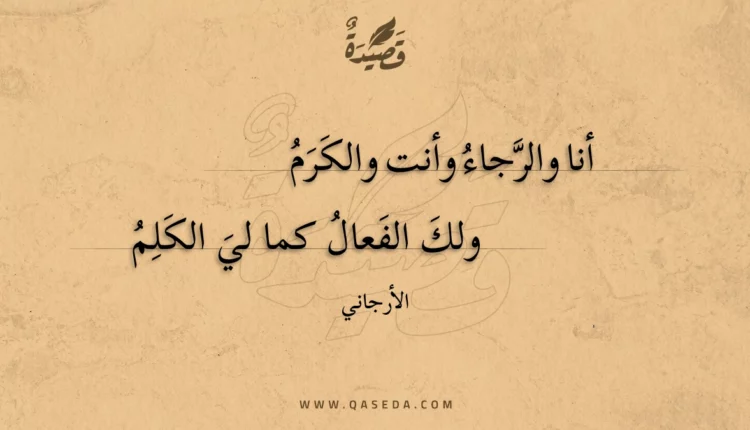 قَصِيْدَةٌ
أنا والرَّجاءُ وأنت والكَرَمُ
ولكَ الفَعالُ كما ليَ الكَلِمُ
الأرجاني
WWW.QASEDA.COM